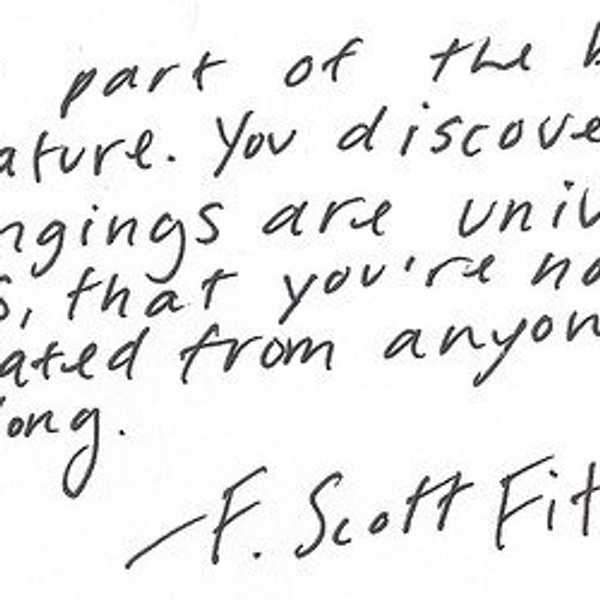 part of the b
ature. You discove
ngings are univ
s, that you're no
ated from anyon
ong.
—F. Scott Fit